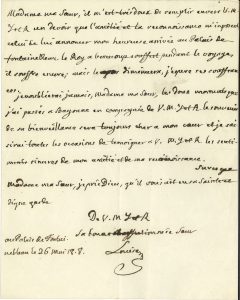 Madame ma Sœur, il m'est bien doux de remplir envers V. M.
I et R un devoir que l'amitié et la reconnaissance m'imposent
celui de lui annoncer mon heureuse arrivée au Palais de
fontainebleau. le Roy a beaucoup souffert pendant le voyage,
il souffre encore; mais le diminuer, j'espère ces souffrances
. je n'oublierai jamais, Madame ma Sœur, les doux moments que
j'ai passés à Bayonne en compagnie de V. M. I et R le souvenir
de sa bienveillance sera toujours cher a mon cœur et je sai
sirai toutes les occasions de témoigner a V. M. I et R les senti
ments sincères de mon amitié et de ma reconnaissance.
Sur ce
Madame ma Sœur, je prie Dieu, qu'il vous ait en sa Sainte et
digne garde
De V. M I et R
Sa bonne affectionnée Sœur
au Palais de Fontai
nebleau le 26 mai
Louise